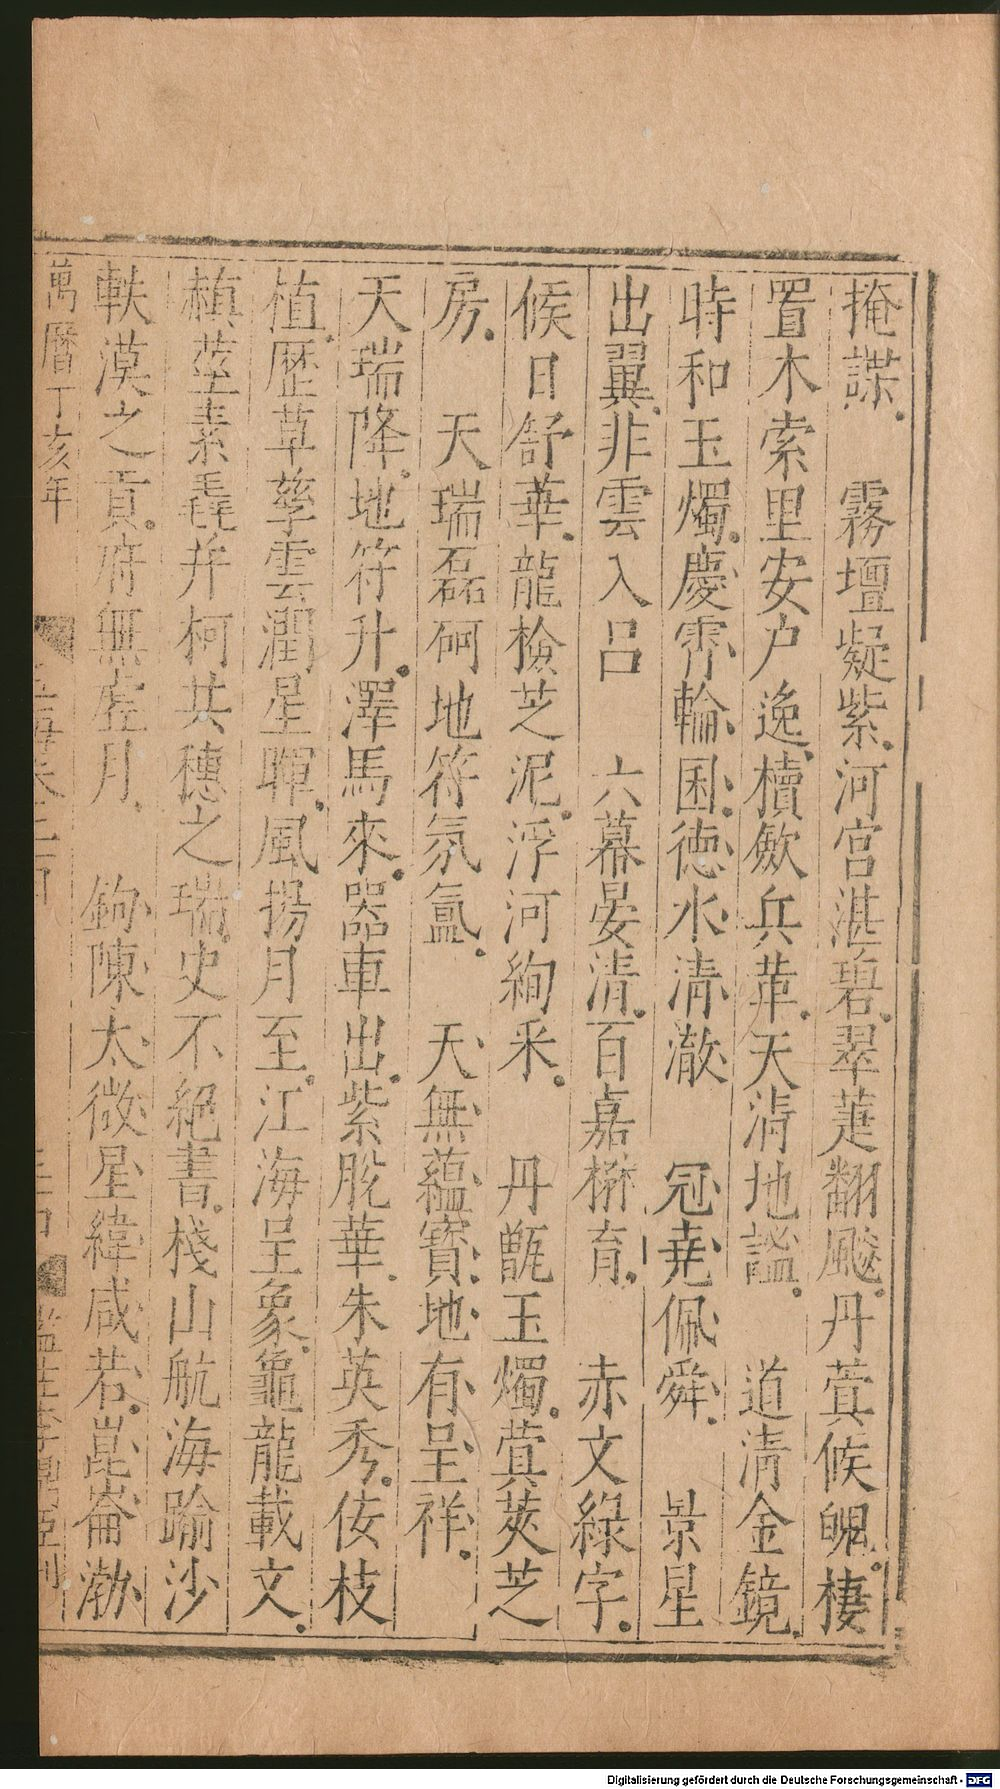 掩諜 霧壇凝紫河宫湛碧翠萐翻颷丹蓂候䰟棲
置木索里安户逸櫝歛兵革天清地謐 道清金鏡
時和玉燭慶霱輪囷德水清澈 冠堯佩舜 景星
出翼非雲入吕 六幕晏清百嘉楙育 赤文綠字
候日舒華龍檢芝泥浮河絢釆 丹甑玉燭蓂莢芝
房 天瑞磊砢地符氛氲 天無藴寳地有呈祥
天瑞降地符升澤馬來器車出紫脫華朱英秀佞枝
植歷草孳雲潤星暉風揚月至江海呈象龜龍載文
赬莖素毳并柯共穗之瑞史不絶書棧山航海踰沙
軼漠之貢府無虚月 鉤陳太微星緯咸若崑崙渤
萬曆丁亥年
玉海卷二百
監生李鼎
刋
Digitalisierung gefördert durch die Deutsche Forschungsgemeinschaft - DFG